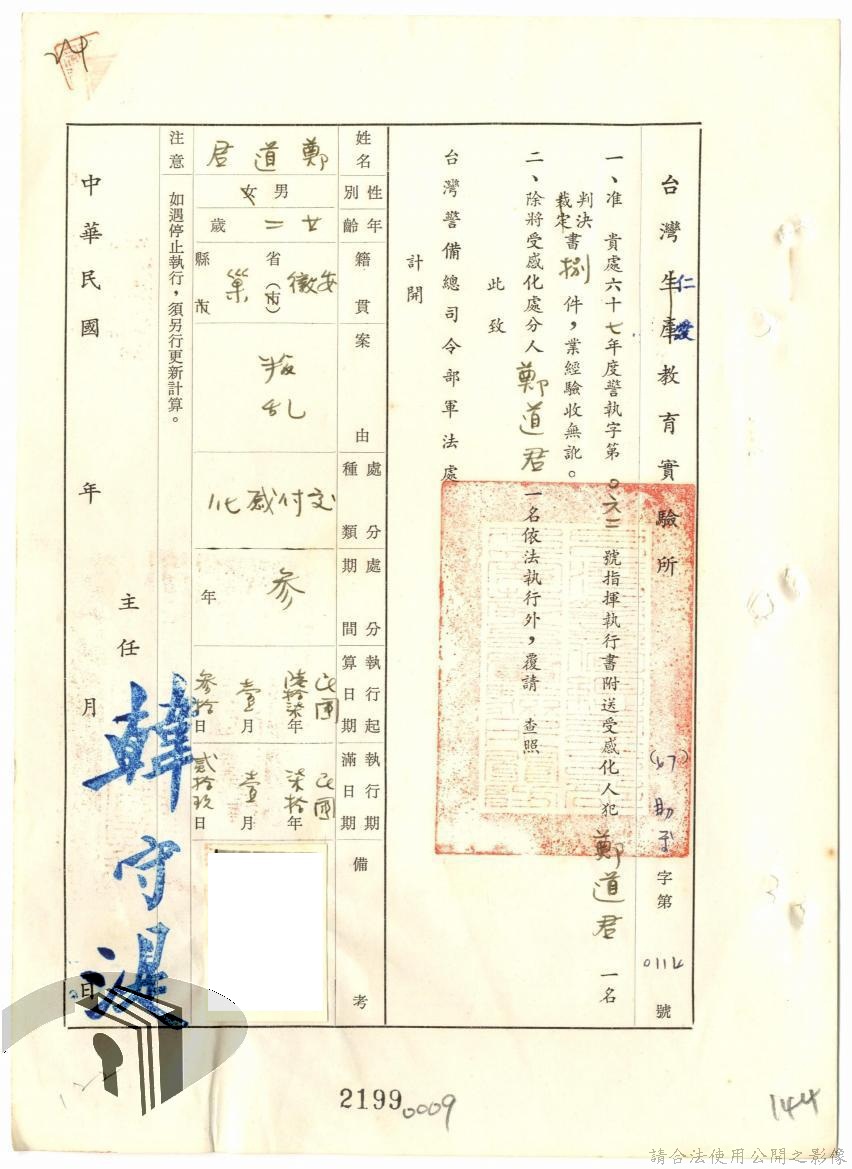 台灣仁愛教育實驗所
(67)助字第0112號
一、准 貴處六十七年度警執字第〇六二號指揮執行書附送受感化人犯 鄭道君 一名
判決
裁定
書捌件，業經驗收無訛。
二、除將受感化處分人 鄭道君 一名依法執行外，覆請 查照
此致
台灣警備總司令部軍法處
計開
姓名 鄭道君
性別 男
年齡 廿二歲
籍貫 安徽省(市) 巢縣
案由 叛乱
處分種類 交付感化
處分期間 參年
執行起算日期 民國陸拾柒年壹月參拾日
執行期滿日期 民國柒拾年壹月貳拾玖日
備考
注意 如遇停止執行，須另行更新計算。
主任 韓守湜
中華民國 年 月 日
2199
0009
144
請合法使用公開之影像